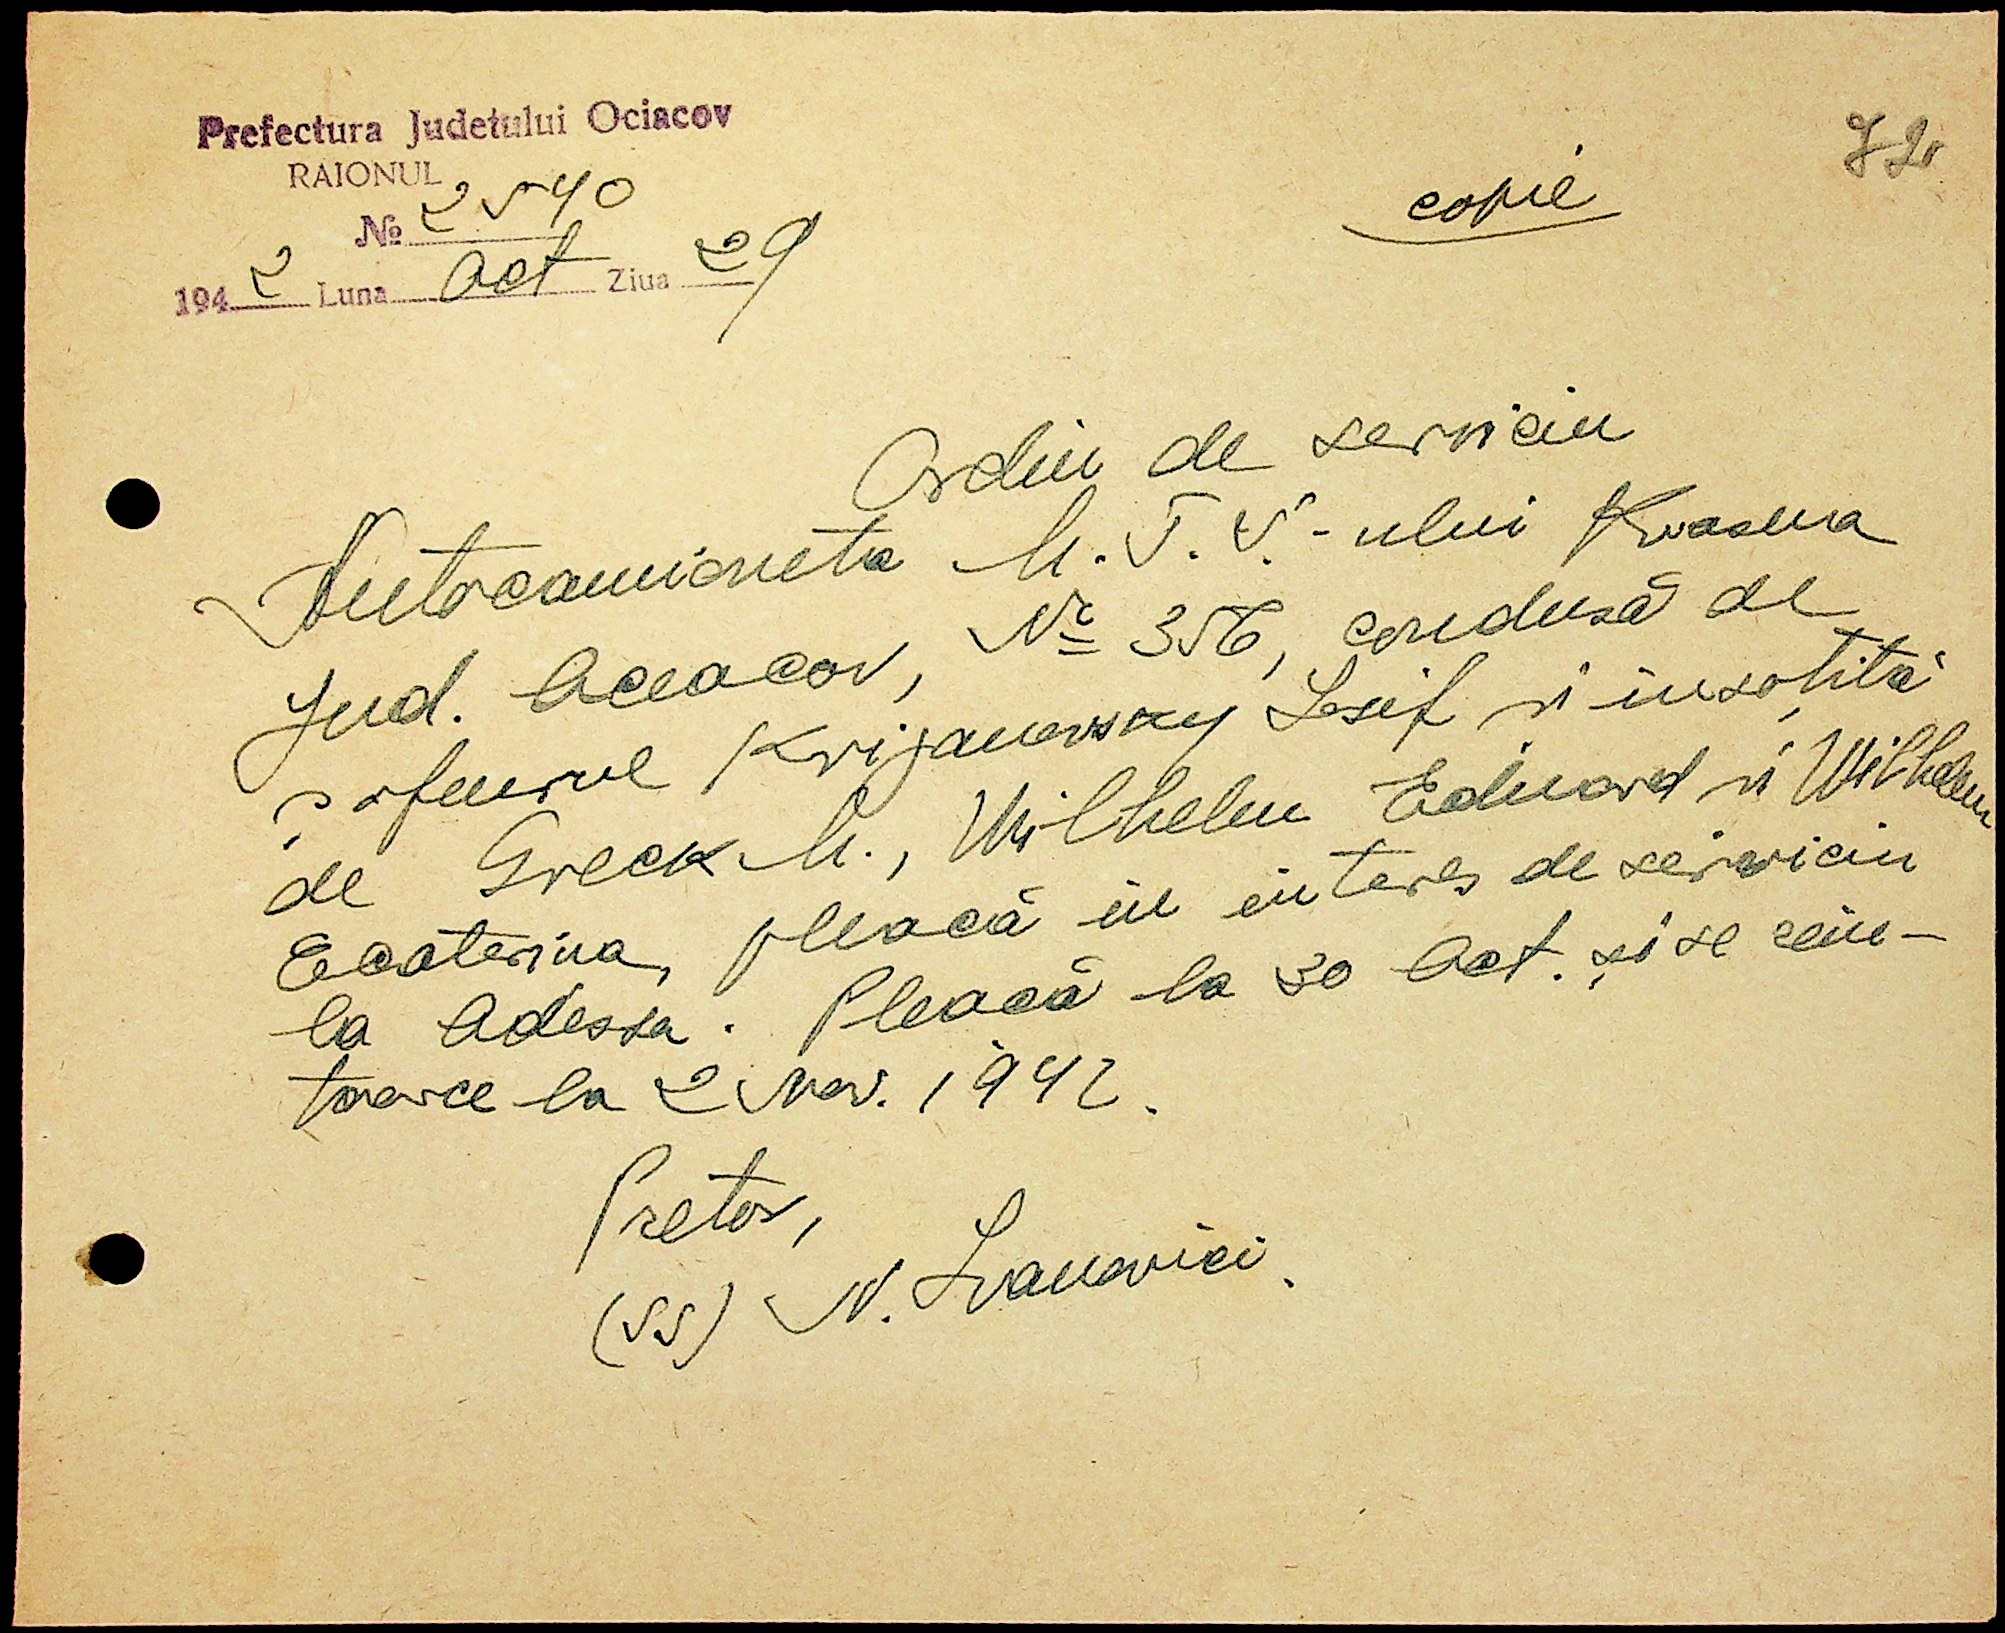 Prefectura Judetului Ociacov
RAIONUL
№ 2540
1942 Luna Oct Ziua 29
copie
72
Ordin de serviciu
Autocamioneta M.T.S.-ului Krasna
Jud. Oceacov, № 356, condusă de
șofeurul Krijanowsky Iosif și insoțită
de Greck M., Wilhelm Eduard și Wilhelm
Ecaterina, pleacă in interes de serviciu
la Odessa. Pleacă la 30 Oct. și se rein-
toarce la 2 Nov. 1942.
Pretor,
(ss) N. Ivanovici.